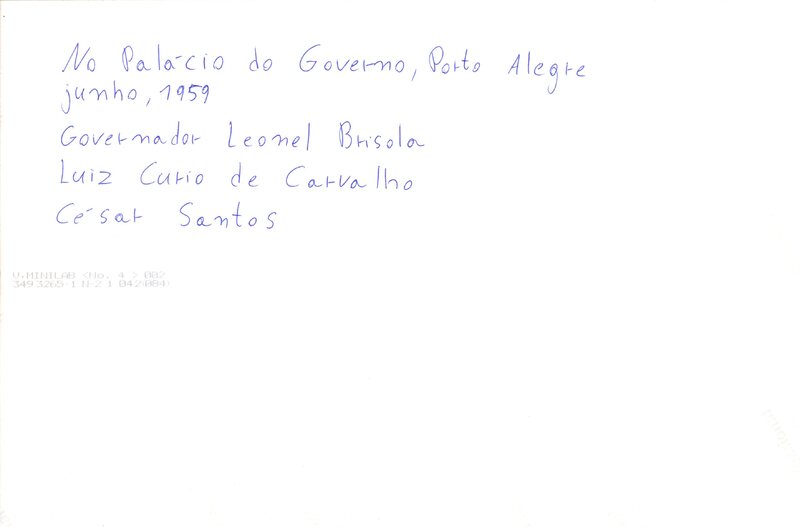 No Palácio do Governo, Porto Alegre
junho, 1959
Governador Leonel Brisola
Luiz Curio de Carvalho
César Santos
V.MINILAB <No. 4 > 002